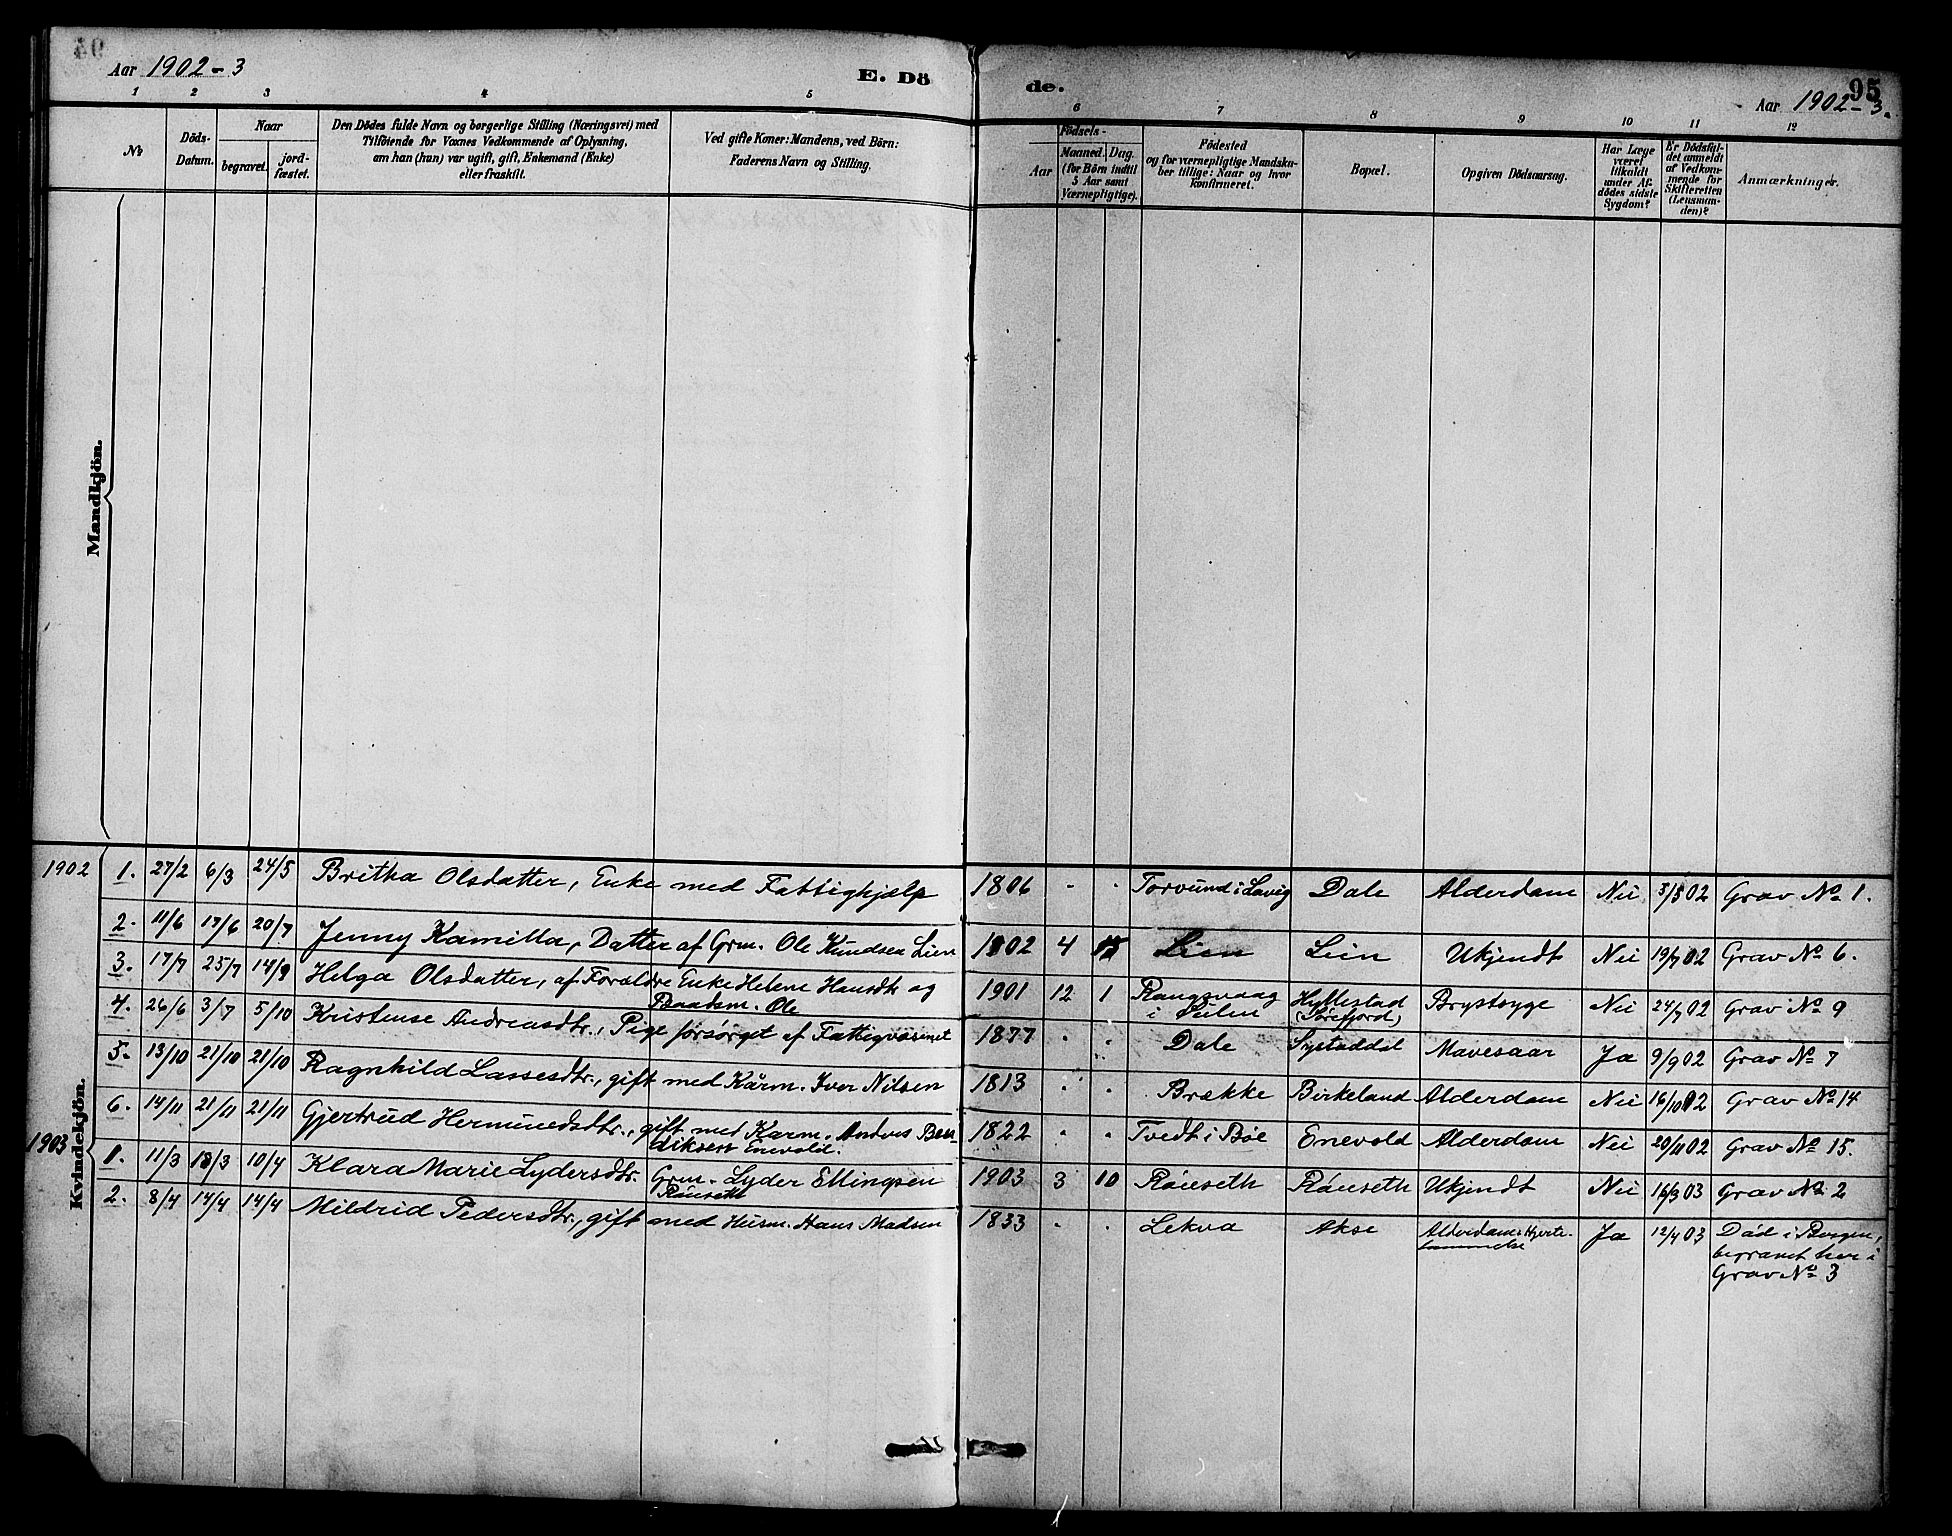 Aar 1902-3
E. Dö
de.
95
Aar 1902-3.
1 2 3 4 5 6 7 8 9 10 11 12
№
Döds-Datum.
Naar
begravet.
jord-fæstet.
Den Dödes fulde Navn og borgerlige Stilling (Næringsvei) med
Tilföiende for Voxnes Vedkommende af Oplysning,
om han (hun) var ugift, gift, Enkemand (Enke)
eller fraskilt.
Ved gifte Koner: Mandens, ved Börn:
Faderens Navn og Stilling.
Födsels-
Aar
Maaned. Dag.
(for Börn indtil
5 Aar samt
Værnepligtige).
Födested
og for værnepligtige Mandskaber tillige: Naar og hvor
konfirmeret.
Bopæl.
Opgiven Dödsaarsag.
Har Læge
været
tilkaldt
under Afdödes sidste
Sygdom?
Er Dödsfaldet anmeldt
af Vedkommende for
Skifteretten
(Lensmanden)?
Anmærkninger.
Mandkjön.
Kvindekjön.
1902 1. 27/2 6/3 24/5 Britha Olsdatter, Enke med Fattighjælp 1806 Torvund i Lavig Dale Alderdom Nei 3/5 02 Grav № 1.
2. 11/6 17/6 20/7 Jenny Kamilla, Datter af Grm. Ole Knudsen Lien 1902 4 Lien Lien Ukjendt Nei 19/7 02 Grav № 6.
3. 17/7 25/7 14/9 Helga Olsdatter, af Forældre Enke Helene Hansdtr og Baadsm. Ole 1901 12 1 Rangsvaag i Sulen Hyllestad Brystsyge Nei 24/7 02 Grav № 9
4. 26/6 3/7 5/10 Kristense Andreasdtr., Pige forsørget af Fattigvæsenet 1877 Dale Systaddal Mavesaar Ja 9/9 02 Grav № 7
5. 13/10 21/10 21/10 Ragnhild Lassesdtr., gift med Kårm. Iver Nilsen 1813 Brække Birkeland Alderdom Nei 16/10 02 Grav № 14
6. 14/11 21/11 21/11 Gjertrud Hermundsdtr., gift med Karm. Andres Bendiksen Enevold. 1822 Tvedt i Bøe Enevold Alderdom Nei 20/11 02 Grav № 15.
1903 1. 11/3 18/3 10/4 Klara Marie Lydersdtr. Grm. Lyder Ellingsen Röneseth 1903 3 10 Röneseth Röneseth Ukjendt Nei 16/3 03 Grav № 2
2. 8/4 14/4 14/4 Mildrid Pedersdtr., gift med Husm. Hans Madsen 1833 Lekva Akse Ja 12/4 03 Død i Bergen,
begravet her i
Grav № 3